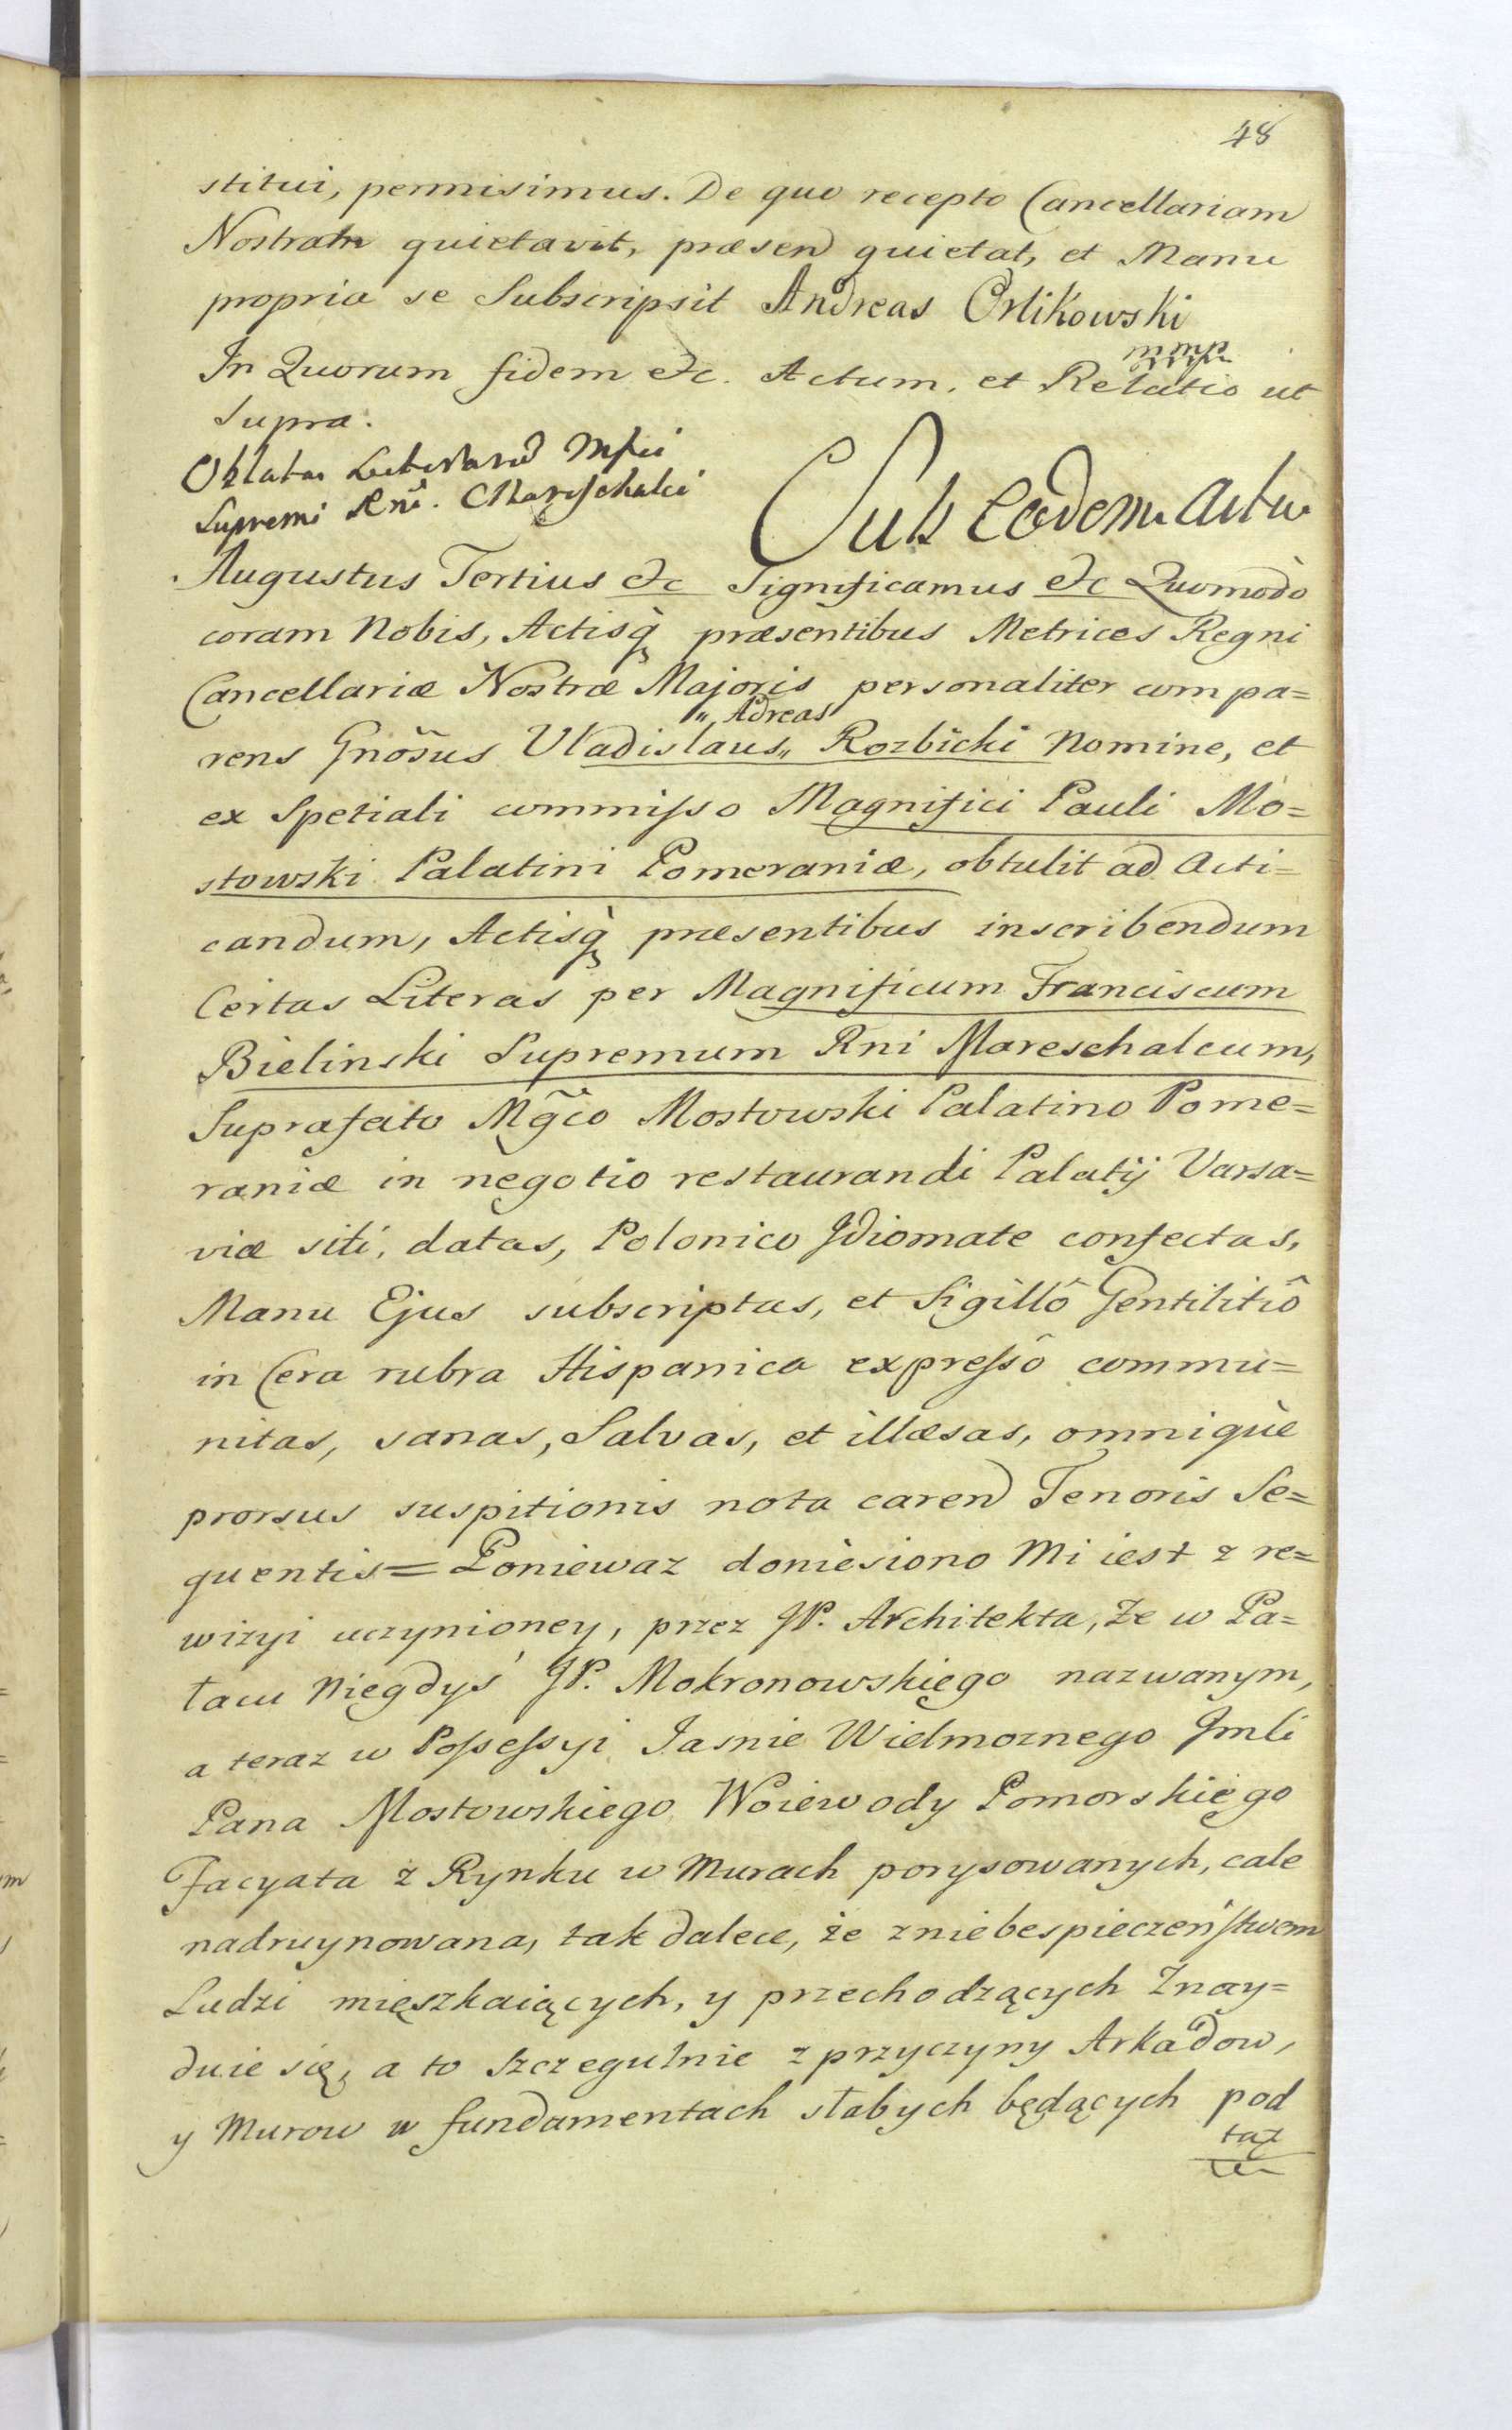 48
stitui, permisimus. De quo recepto Cancellariam
Nostram quietavit, præsen quietat, et Manu
propria se Subscripsit Andreas Orlikowski
mmp
In Quorum fidem etc. Actum, et Relatio ut
Supra.
Oblata Literarū Mfci
Supremi Rni. Mareschalci
Sub eodem Actu
Augustus Tertius etc Significamus etc Quomodò
coram Nobis, Actisq̀ præsentibus Metrices Regni
Cancellariæ Nostræ Majoris personaliter compa=
rens Gnõsus Vladislaus „ Adreas „ Rozbicki Nomine, et
ex Spetiali commisso Magnifici Pauli Mo=
stowski Palatini Pomeraniæ, obtulit ad Acti=
candum, Actisq̀ præsentibus inscribendum
Certas Literas per Magnificum Franciscum
Bielinski Supremum Rni Mareschalcum,
Suprafato Mg̃co Mostowski Palatino Pome=
raniæ in negotio restaurandi Palatij Varsa=
viæ siti, datas, Polonico Jdiomate confectas,
Manu Ejus subscriptas, et Sigillô Gentilitiô
in Cera rubra Hispanica expressô commu=
nitas, sanas, Salvas, et illæsas, omnique
prorsus suspitionis nota caren Tenoris Se=
quentis = Poniewaz doniesiono Mi iest z re=
wizyi uczynioney, przez JP. Architekta, Ze w Pa=
łacu Niegdyś JP. Mokronowskiego nazwanym,
a teraz w Possessyi Jasnie Wielmoznego Jmci
Pana Mostowskiego Woiewody Pomorskiego
Facyata z Rynku w Murach porysowanych, cale
nadruynowana, tak dalece, że z niebespieczeństwem
Ludzi mięszkaiących, y przechodzących Znay=
duie się, a to Szczegulnie z przyczyny Arkadow,
y Murow w fundamentach słabych będących pod
taż